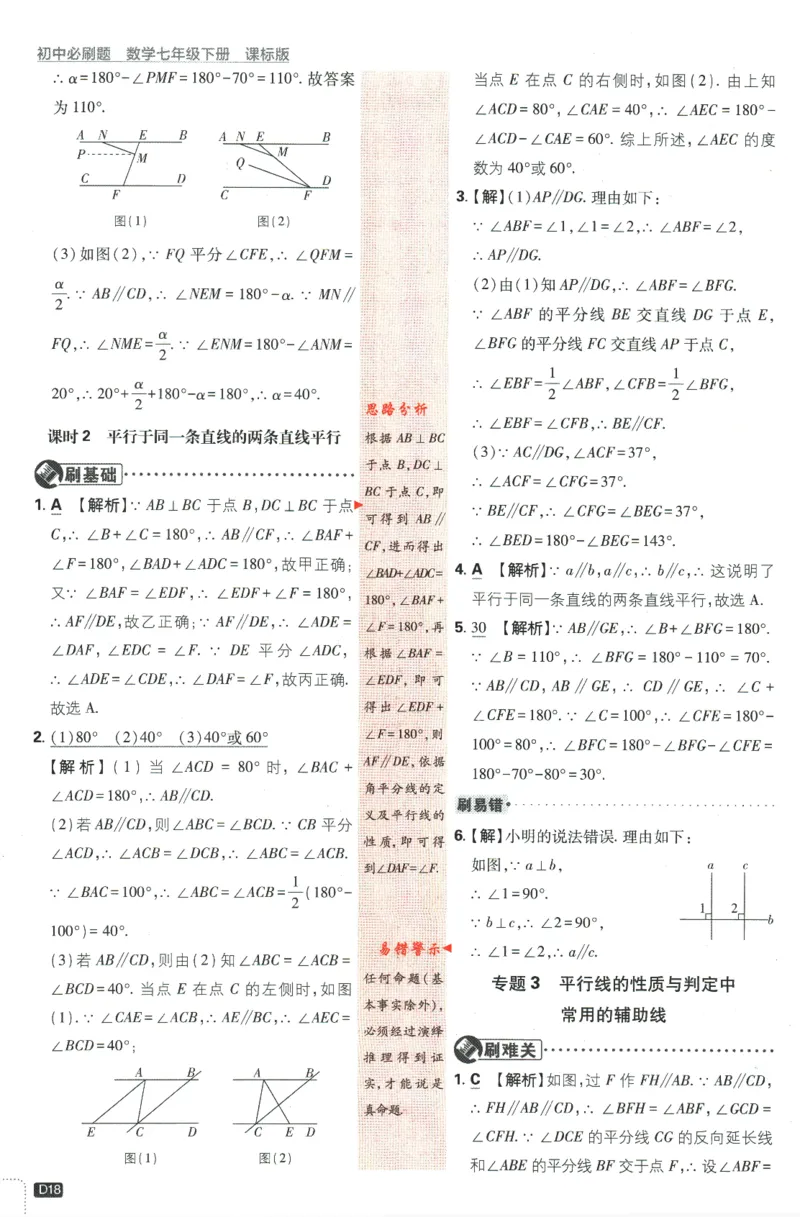 初中必刷题 数学七年级下册 课标版
∴ α=180°-∠PMF=180°-70°=110°. 故答案
为 110°.
A N E B
P M
C D
F
图(1)
A N E B
M
Q
D
C F
图(2)
(3)如图(2),∵ FQ 平分∠CFE,∴ ∠QFM=
α/2.∵ AB∥CD,∴ ∠NEM=180°-α.∵ MN∥
FQ,∴ ∠NME=α/2.∵ ∠ENM=180°-∠ANM=
20°,∴ 20°+α/2+180°-α=180°,∴ α=40°.
课时2 平行于同一条直线的两条直线平行
刷基础
1. A 【解析】∵ AB⊥BC 于点 B,DC⊥BC 于点
C,∴ ∠B+∠C=180°,∴ AB∥CF,∴ ∠BAF+
∠F=180°,∠BAD+∠ADC=180°,故甲正确;
又∵ ∠BAF=∠EDF,∴ ∠EDF+∠F=180°,
∴ AF∥DE,故乙正确;∵ AF∥DE,∴ ∠ADE=
∠DAF, ∠EDC = ∠F. ∵ DE 平分 ∠ADC,
∴ ∠ADE=∠CDE,∴ ∠DAF=∠F,故丙正确.
故选 A.
2. (1)80° (2)40° (3)40°或60°
【解析】(1) 当 ∠ACD = 80° 时, ∠BAC +
∠ACD=180°,∴ AB∥CD.
(2)若AB∥CD,则∠ABC=∠BCD.∵ CB 平分
∠ACD,∴ ∠ACB=∠DCB,∴ ∠ABC=∠ACB.
∵ ∠BAC=100°,∴ ∠ABC=∠ACB=1/2(180°-
100°)=40°.
(3)若 AB∥CD,则由(2)知∠ABC=∠ACB=
∠BCD=40°. 当点 E 在点 C 的左侧时,如图
(1).∵ ∠CAE=∠ACB,∴ AE∥BC,∴ ∠AEC=
∠BCD=40°;
A B
E C D
图(1)
A B
C E D
图(2)
D18
思路分析
根据 AB⊥BC
于点 B,DC⊥
BC 于点 C,即
可得到 AB∥
CF,进而得出
∠BAD+∠ADC=
180°,∠BAF+
∠F=180°,再
根据∠BAF=
∠EDF, 即可
得出∠EDF+
∠F=180°,则
AF∥DE,依据
角平分线的定
义及平行线的
性质,即可得
到∠DAF=∠F.
易错警示
任何命题(基
本事实除外),
必须经过演绎
推理得到证
实,才能说是
真命题.
当点 E 在点 C 的右侧时,如图(2). 由上知
∠ACD=80°,∠CAE=40°,∴ ∠AEC=180°-
∠ACD-∠CAE=60°. 综上所述,∠AEC 的度
数为 40°或 60°.
3. 【解】(1)AP∥DG. 理由如下:
∵ ∠ABF=∠1,∠1=∠2,∴ ∠ABF=∠2,
∴ AP∥DG.
(2)由(1)知AP∥DG,∴ ∠ABF=∠BFG.
∵ ∠ABF 的平分线 BE 交直线 DG 于点 E,
∠BFG 的平分线 FC 交直线 AP 于点 C,
∴ ∠EBF=1/2∠ABF,∠CFB=1/2∠BFG,
∴ ∠EBF=∠CFB,∴ BE∥CF.
(3)∵ AC∥DG,∠ACF=37°,
∴ ∠ACF=∠CFG=37°.
∵ BE∥CF,∴ ∠CFG=∠BEG=37°,
∴ ∠BED=180°-∠BEG=143°.
4. A 【解析】∵ a∥b,a∥c,∴ b∥c,∴ 这说明了
平行于同一条直线的两条直线平行,故选 A.
5. 30 【解析】∵ AB∥GE,∴ ∠B+∠BFG=180°.
∵ ∠B=110°,∴ ∠BFG=180°-110°=70°.
∵ AB∥CD, AB∥GE, ∴ CD∥GE, ∴ ∠C +
∠CFE=180°.∵ ∠C=100°,∴ ∠CFE=180°-
100°=80°,∴ ∠BFC=180°-∠BFG-∠CFE=
180°-70°-80°=30°.
刷易错
6. 【解】小明的说法错误. 理由如下:
如图,∵ a⊥b,
∴ ∠1=90°.
∵ b⊥c,∴ ∠2=90°,
∴ ∠1=∠2,∴ a∥c.
a c
1 2
b
专题3 平行线的性质与判定中
常用的辅助线
刷难关
1. C 【解析】如图,过 F 作 FH∥AB.∵ AB∥CD,
∴ FH∥AB∥CD,∴ ∠BFH=∠ABF,∠GCD=
∠CFH.∵ ∠DCE 的平分线 CG 的反向延长线
和∠ABE 的平分线 BF 交于点 F,∴ 设∠ABF=